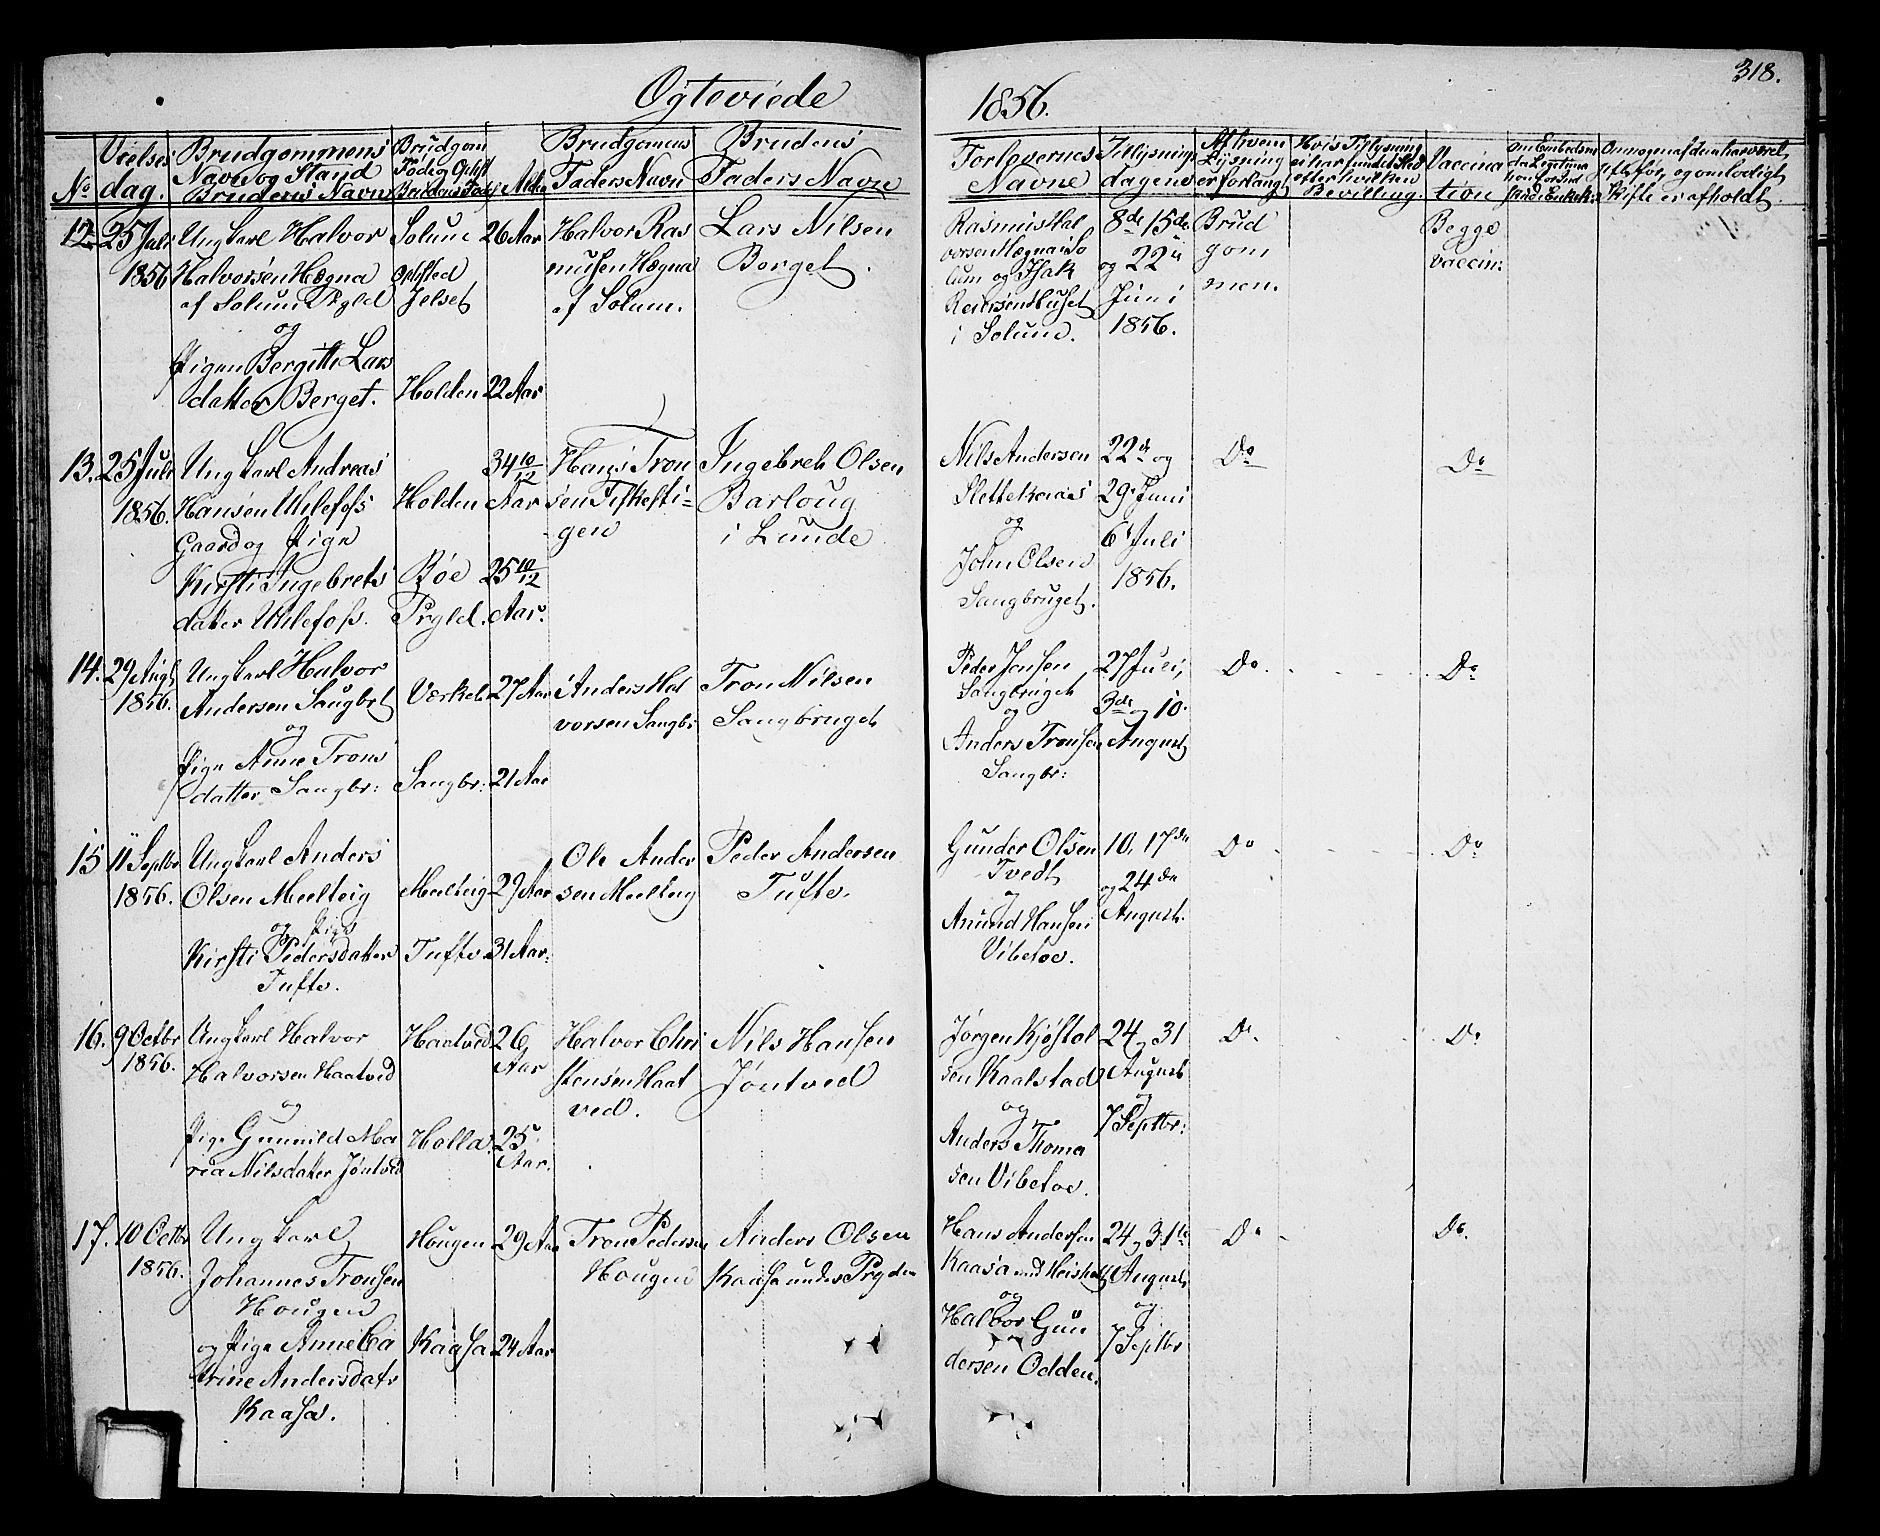 318.
Ogteviede
1856.
No
Vielses dag.
Brudgommens Navn og Stand Brudens Navn
Brudgom Føde og Opfst Brudens Føde
Alder
Brudgomens Faders Navn
Brudens Faders Navn
Forlovernes Navne
Tillysnings dagene
Af hvem Lysning er forlangt
Hvis Tillysning ei har fundet Sted efter hvilken Bevilling.
Vaccina tion
Om nogen af dem har været gifte før, og om lovligt Skifte er afholdt.
12. 25 Juli 1856
Ungkarl Halvor
Halvorsen Hægna
af Solum Prgld
og
Pigen Bergitte Lars
datter Berget.
Solum
Opfsted
Jelset
Holden
26 Aar
22 Aar
Halvor Ras
musen Hægna
af Solum.
Lars Nilsen
Berget.
Rasmus Hal
vorsen Hægna i So
lum og Isak
Reiersen Huset
i Solum.
8de 15de
og 22
Juni
1856.
Brud
gom
men.
Begge
vaccin:
13. 25 Juli 1856.
Ungkarl Andreas
Hansen Uhlefoss
Gaard og Pige
Kirsti Ingebrets
dater Uhlefoss.
Holden
Bøe
Prgld.
34 10/12
Aar
25 10/12
Aar.
Hans Tron
sen Fiskesti-
gen
Ingebreh Olsen
Barloug
i Lunde
Nils Andersen
Sletteknas
og
John Olsen
Saugbruget.
22de og
29. Juni
6 Juli
1856.
Do
Do
14. 29 Augt 1856.
Ungkarl Halvor
Andersen Saugbrt
og
Pige Anne Trons
datter Saugbr:
Værket
Saugbr:
27 Aar
21 Aar
Anders Hal
vorsen Saugbr:
Tron Nilsen
Saugbruget
Peder Jensen
Saugbruget
og
Anders Tronsen
Saugbr:
27 Juli,
3de og 10.
August
Do.
Do
15 11 Septbr 1856.
Ungkarl Anders
Olsen Meelteig
og Pige
Kirsti Pedersdatter
Tufte.
Meelteig
Tufte.
29 Aar
31 Aar.
Ole Ander
sen Meelteig
Peder Andersen
Tufte.
Gunder Olsen
Tvedt
og
Anund Hansen
Vibetoe.
10, 17de
og 24de
August.
Do
Do
16. 9 Octbr 1856.
Ungkarl Halvor
Halvorsen Haatved
og
Pige Gunnild Ma
ria Nilsdater Jøntved
Haatved
Holla.
26
Aar
25
Aar.
Halvor Chri
stensen Haat
ved.
Nils Hansen
Jøntved
Jørgen Kjøstol
sen Kaalstad
og
Anders Thoma
sen Vibetoe.
24 og 31
August
og
7 Septbr:
Do
Do
17. 10 Octbr 1856.
Ungkarl
Johannes Tronsen
Hougen
og Pige Anne Ca
trine Andersdatr
Kaasa.
Hougen
Kaasa
29 Aar
24 Aar
Tron Pedersen
Hougen
Anders Olsen
Kaasa under Prgden
Hans Andersen
Kaasa
og
Halvor Gun
dersen Odden.
24 og 31te
August
og
7 Septbr
Do
Do.